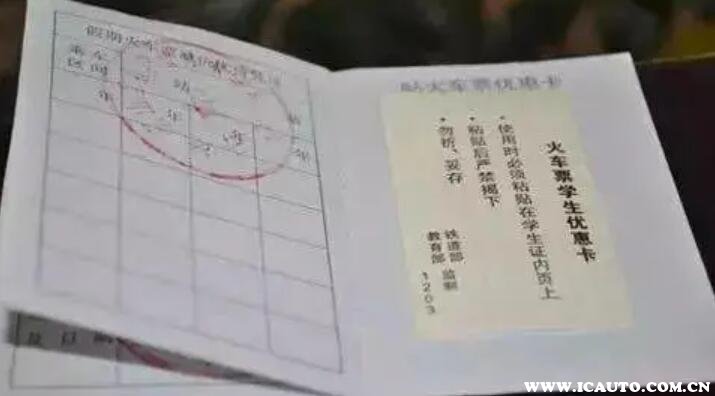 假期火车票
乘车
区间
站
年 年
贴火车票优惠卡
火车票学生优惠卡
• 使用时必须粘贴在学生证内页上
• 粘贴后严禁揭下
• 勿折、妥存
铁道部 监制
教育部
1203
WWW.ICAUTO.COM.CN